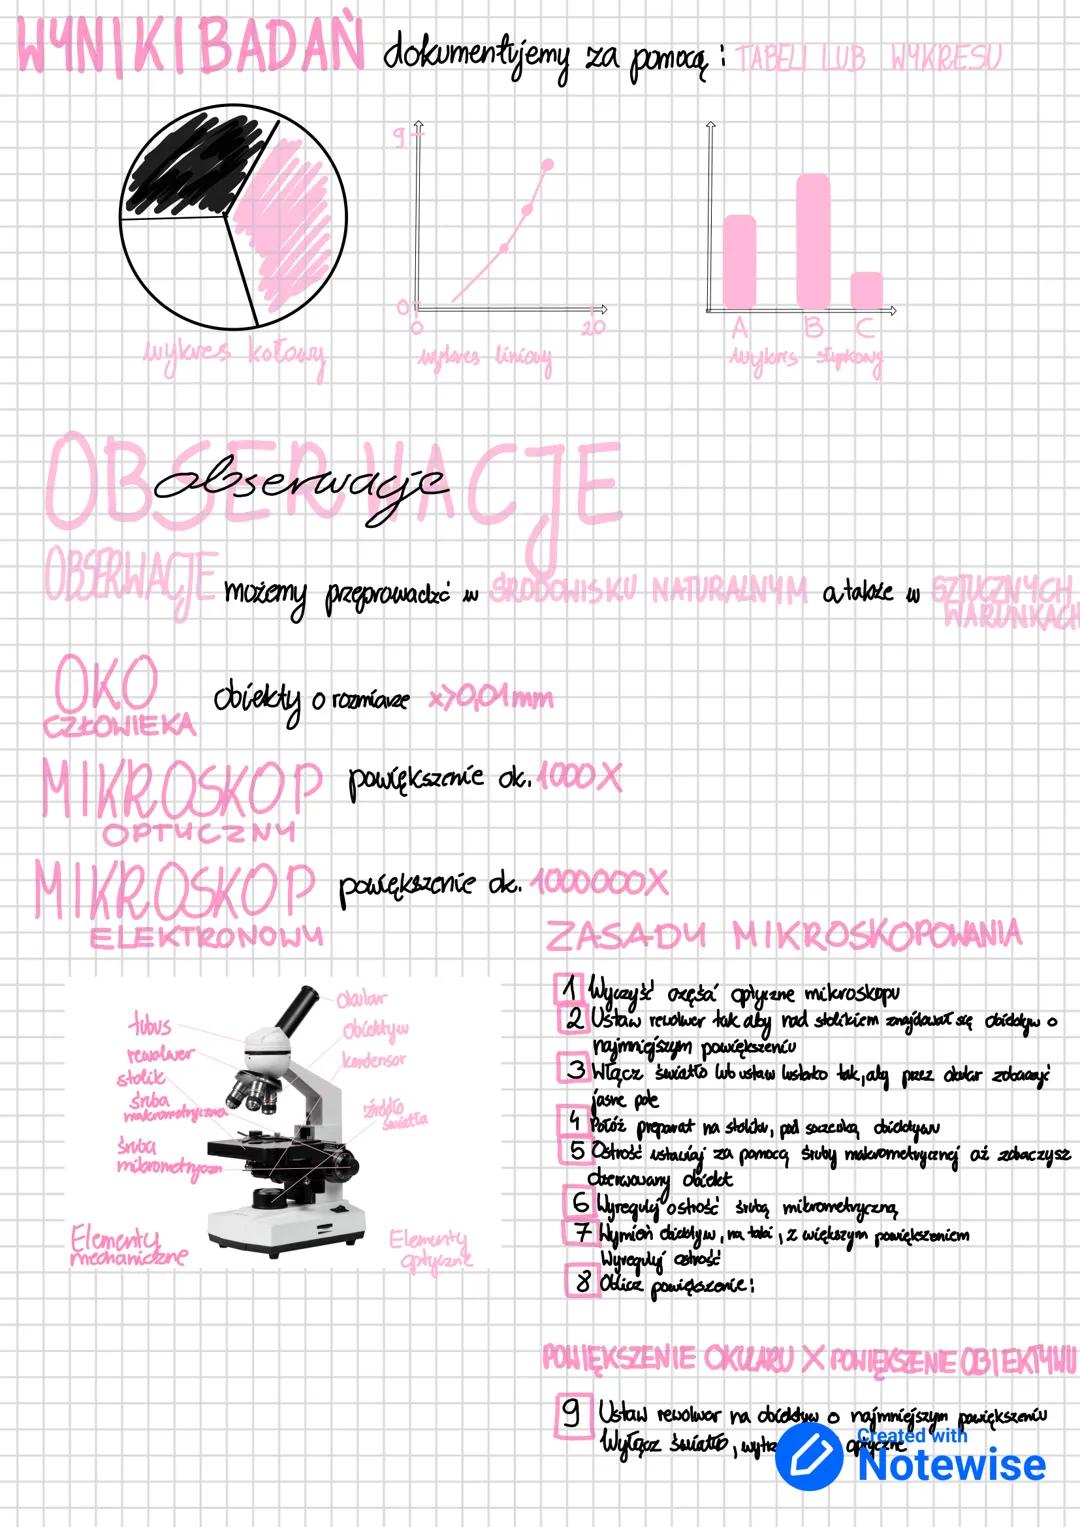 WYNIKI BADAŃ dokumentujemy za pomocą : TABELI LUB WYKRESU
9
0
0 20
A B C
wykres kołowy wykres liniowy wykres słupkowy
OBSERWACJE
obserwacje
OBSERWACJE możemy przeprowadzić w ŚRODOWISKU NATURALNYM a także w SZTUCZNYCH
WARUNKACH
OKO
CZŁOWIEKA
obiekty o rozmiarze x>0,01mm
MIKROSKOP
OPTYCZNY
powiększenie ok. 1000X
MIKROSKOP
ELEKTRONOWY
powiększenie ok. 1000000X
tubus
rewolwer
stolik
śruba
makrometryczna
śruba
mikrometryczn
Elementy
mechaniczne
Okular
Obiektyw
kondensor
źródło
światła
Elementy
optyczne
ZASADY MIKROSKOPOWANIA
1 Wyczyść części optyczne mikroskopu
2 Ustaw rewolwer tak aby nad stolikiem znajdował się obiektyw o
najmniejszym powiększeniu
3 Włącz światło lub ustaw lusterko tak, aby przez okular zobaczyć
jasne pole
4 Połóż preparat na stoliku, pod soczewką obiektywu
5 Ostrość ustawiaj za pomocą śruby makrometrycznej aż zobaczysz
obserwowany obiekt
6 Wyreguluj ostrość śrubą mikrometryczną
7 Wymień obiektyw, na taki, z większym powiększeniem
Wyreguluj ostrość
8 Oblicz powiększenie:
POWIĘKSZENIE OKULARU X POWIĘKSZENIE OBIEKTYWU
9 Ustaw rewolwer na obiektyw o najmniejszym powiększeniu
Wyłącz światło, optyczne
Created with
Notewise